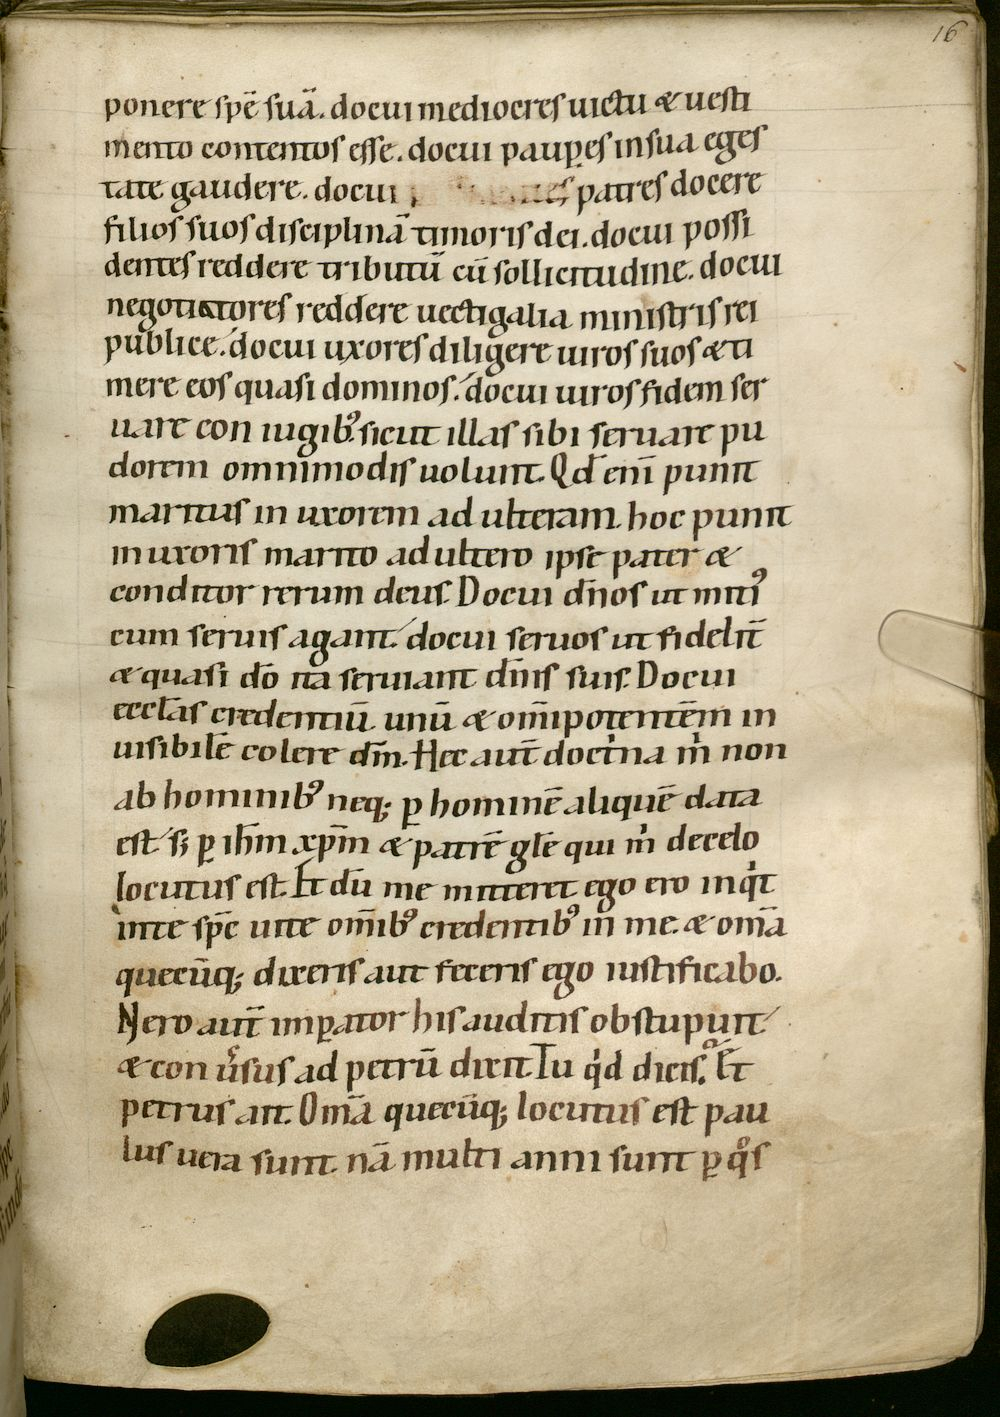 16
ponere spē suā. docui mediocres uictu & uesti
mento contentos esse. docui paup̱es in sua eges
tate gaudere. docui patres docere
filios suos disciplinā timoris dei. docui possi
dentes reddere tributū cū sollicitudine. docui
negotiatores reddere uectigalia ministris rei
publice. docui uxores diligere uiros suos & ti
mere eos quasi dominos. docui uiros fidem ser
uare con iugibꝰ. sicut illas sibi seruare pu
dorem omnimodis uolunt. Qd̄ eni̅ punit
maritus in uxorem ad ulteram. hoc punit
in uxoris marito adultero ipse pater &
conditor rerum deus. Docui dn̄os ut mitiꝰ
cum seruis agant. docui seruos ut fidelit̄
& quasi dō ita seruiant dn̄is suis. Docui
eccl̄as credentiū. unū & om̄ipotentēm in
uisibilē colere dm̄. Hec aut̄ doctͥna m̍ non
ab hominibꝰ neq; ꝑ hominē aliquē data
est. s; ꝑ ih̄m xp̄m & patrē gl̄e qui m̍ de celo
locutus est. Et dū me mitteret ego ero inqͥt
in te spē uite om̄ibꝰ credentibꝰ in me. & om̄a
quecūq; dixeris aut feceris ego iustificabo.
Nero aut̄ imꝑator his auditis obstupuit
& con uͬsus ad petrū dixit. Tu qͥd dicis. Et
petrus ait. Om̄a quecūq; locutus est pau
lus uera sunt. nā multi anni sunt ꝑ qͦs